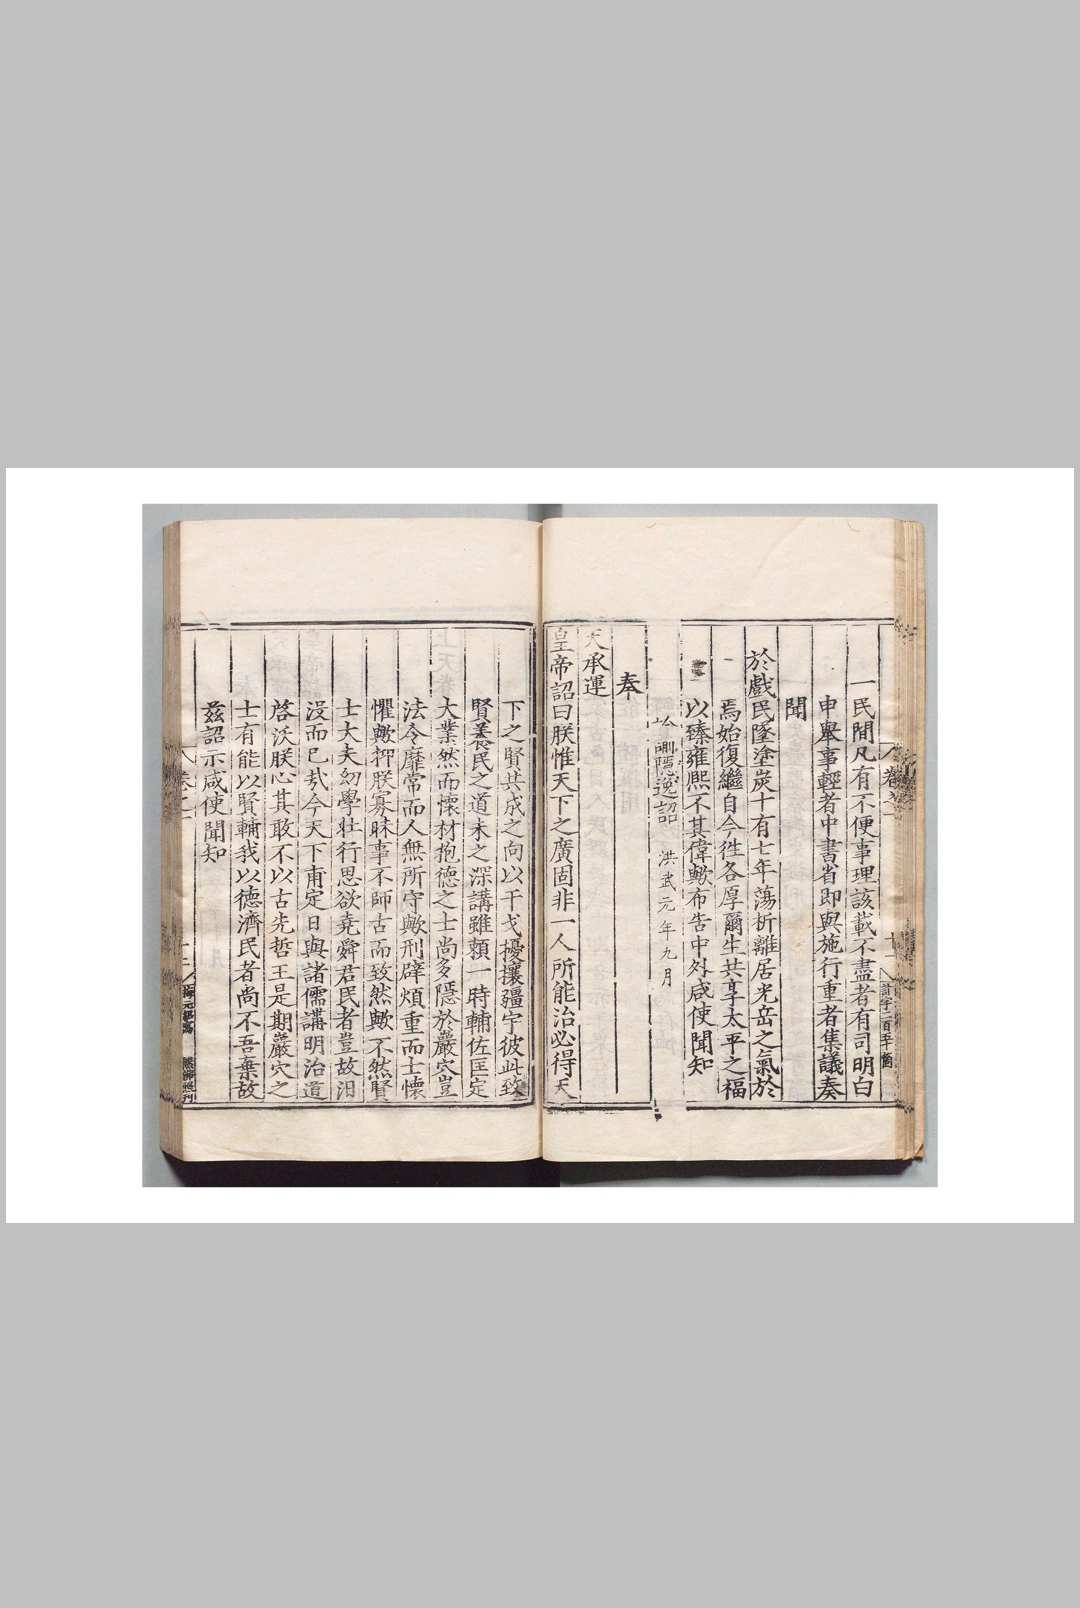 卷之一
十一
一民間凡有不便事理該載不盡者有司明白
申舉事輕者中書省即與施行重者集議奏
聞
於戲民墜塗炭十有七年蕩析離居光岳之氣於
焉始復繼自今徃各厚爾生共享太平之福
以臻雍熙不其偉歟布告中外咸使聞知
遺逸詔 洪武元年九月
奉
天承運
皇帝詔曰朕惟天下之廣固非一人所能治必得天
下之賢共成之向以干戈擾攘疆宇彼此致
賢養民之道未之深講雖頼一時輔佐匡定
大業然而懷材抱德之士尚多隱於巖穴豈
法令靡常而人無所守歟刑辟煩重而士懷
懼歟抑朕寡昧事不師古而致然歟不然賢
士大夫幼學壯行思欲堯舜君民者豈故汨
沒而已㢤今天下甫定日與諸儒講明治道
啓沃朕心其敢不以古先哲王是期巖穴之
士有能以賢輔我以德濟民者尚不吾棄故
茲詔示咸使聞知
卷之一
十二